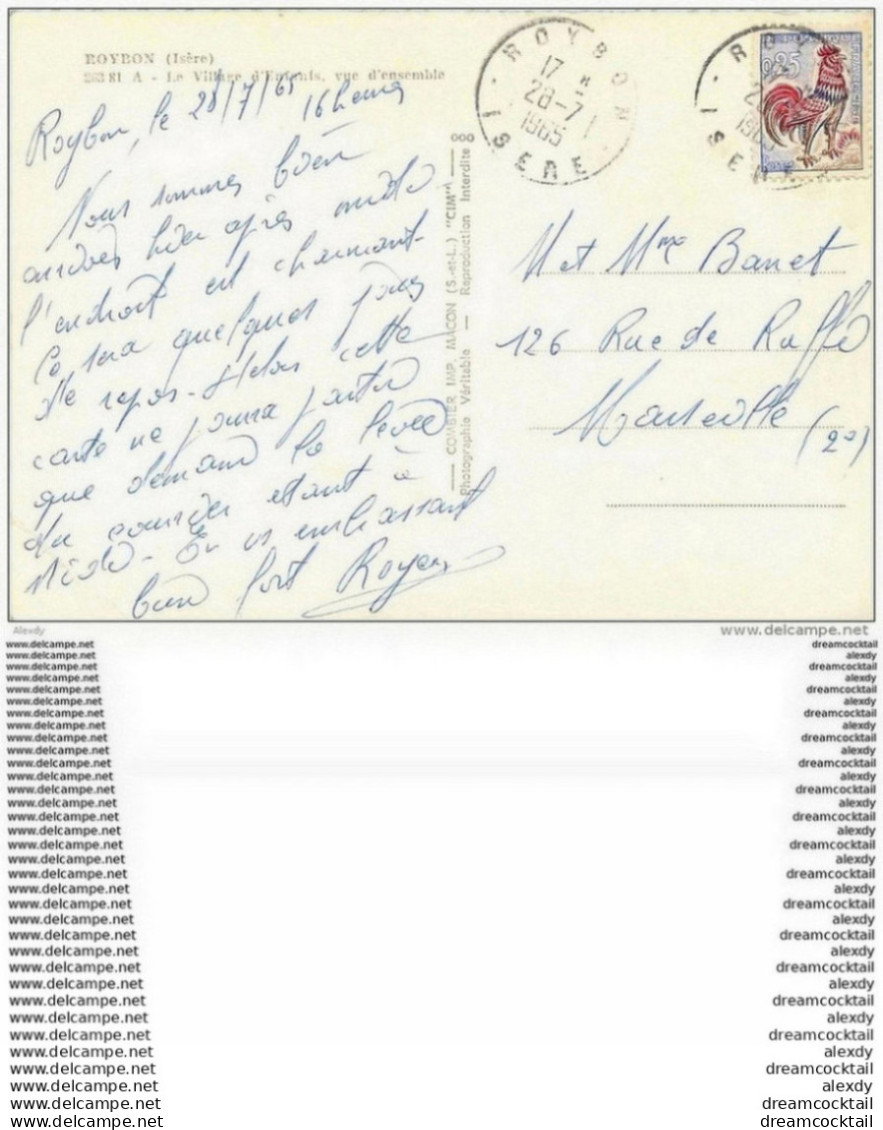 ROYBON (Isère)
263 81 A - Le Village d'Enfants, vue d'ensemble
Roybon, le 28/7/65
16 heures
Nous sommes bien
arrivés hier après midi
l'endroit est charmant.
Ce sera quelques jours
de repos - Hélas cette
carte ne pourra partir
que demain la levée
du courrier étant à
Midi - En vs embrassant
bien fort Royer
COMBIER IMP. MACON (S.-et-L.) "CIM"
Photographie Véritable — Reproduction Interdite
ROYBON
17 H
28-7
1965
ISERE
0,25
M et Mme Banet
126 Rue de Ruffi
Marseille
(2e)
Alexdy
www.delcampe.net
www.delcampe.net dreamcocktail
www.delcampe.net alexdy
www.delcampe.net dreamcocktail
www.delcampe.net alexdy
www.delcampe.net dreamcocktail
www.delcampe.net alexdy
www.delcampe.net dreamcocktail
www.delcampe.net alexdy
www.delcampe.net dreamcocktail
www.delcampe.net alexdy
www.delcampe.net dreamcocktail
www.delcampe.net alexdy
www.delcampe.net dreamcocktail
www.delcampe.net alexdy
www.delcampe.net dreamcocktail
www.delcampe.net alexdy
www.delcampe.net dreamcocktail
www.delcampe.net alexdy
www.delcampe.net dreamcocktail
www.delcampe.net alexdy
www.delcampe.net dreamcocktail
www.delcampe.net alexdy
www.delcampe.net dreamcocktail
www.delcampe.net alexdy
www.delcampe.net dreamcocktail
www.delcampe.net alexdy
www.delcampe.net dreamcocktail
www.delcampe.net alexdy
www.delcampe.net dreamcocktail
www.delcampe.net alexdy
www.delcampe.net dreamcocktail
www.delcampe.net alexdy
www.delcampe.net dreamcocktail
www.delcampe.net dreamcocktail